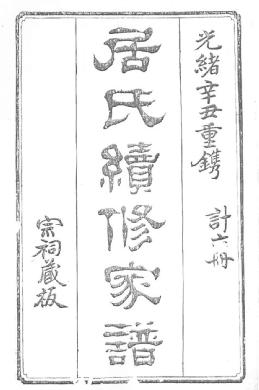 光緒辛丑重鐫 計六冊
居氏續修家譜
宗祠藏板